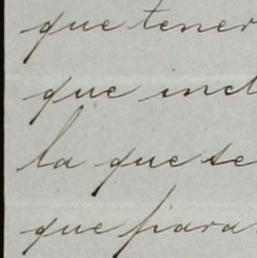 que tener
que incl
la que se
que para